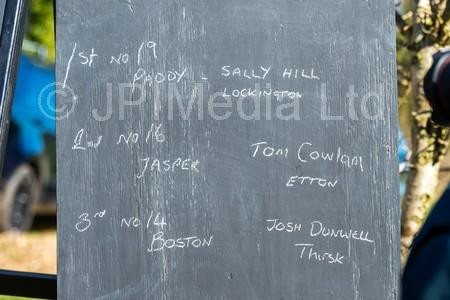 1st No 19
PADDY - SALLY HILL
LOCKINGTON
© JPI Media Ltd
2nd No 16
JASPER Tom Cowlam
ETTON
3rd No 14
BOSTON JOSH DUNWELL
Thirsk